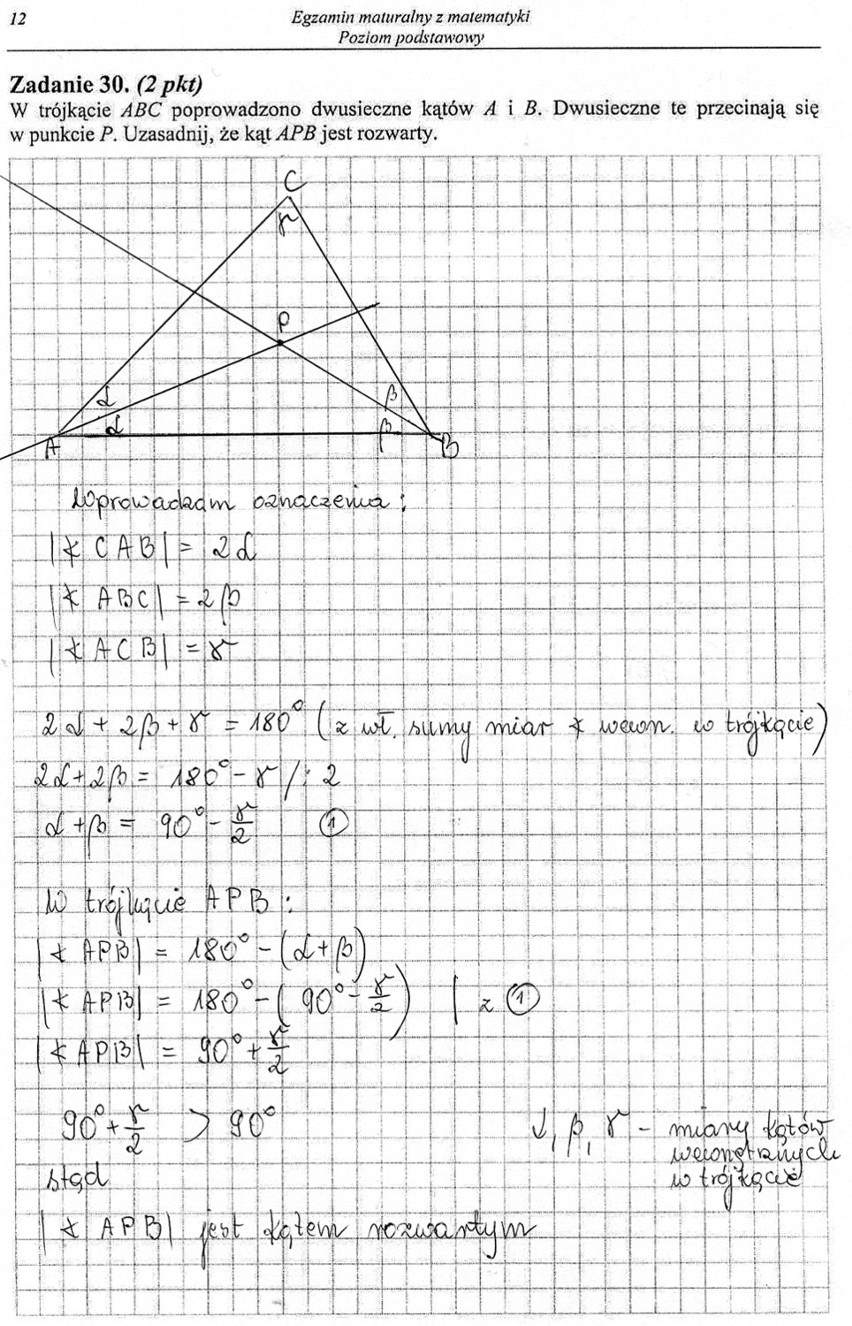 12
Egzamin maturalny z matematyki
Poziom podstawowy
Zadanie 30. (2 pkt)
W trójkącie ABC poprowadzono dwusieczne kątów A i B. Dwusieczne te przecinają się
w punkcie P. Uzasadnij, że kąt APB jest rozwarty.
C
γ
P
α
β
α
β
A
B
Wprowadzam oznaczenia:
|∡ CAB| = 2α
|∡ ABC| = 2β
|∡ ACB| = γ
2α + 2β + γ = 180° (z wł. sumy miar ∡ wewn. w trójkącie)
2α + 2β = 180° - γ /: 2
α + β = 90° - γ/2 ①
W trójkącie APB:
|∡ APB| = 180° - (α + β)
|∡ APB| = 180° - (90° - γ/2) | z ①
|∡ APB| = 90° + γ/2
90° + γ/2 > 90°
α, β, γ - miary kątów
wewnętrznych
w trójkącie
stąd
|∡ APB| jest kątem rozwartym